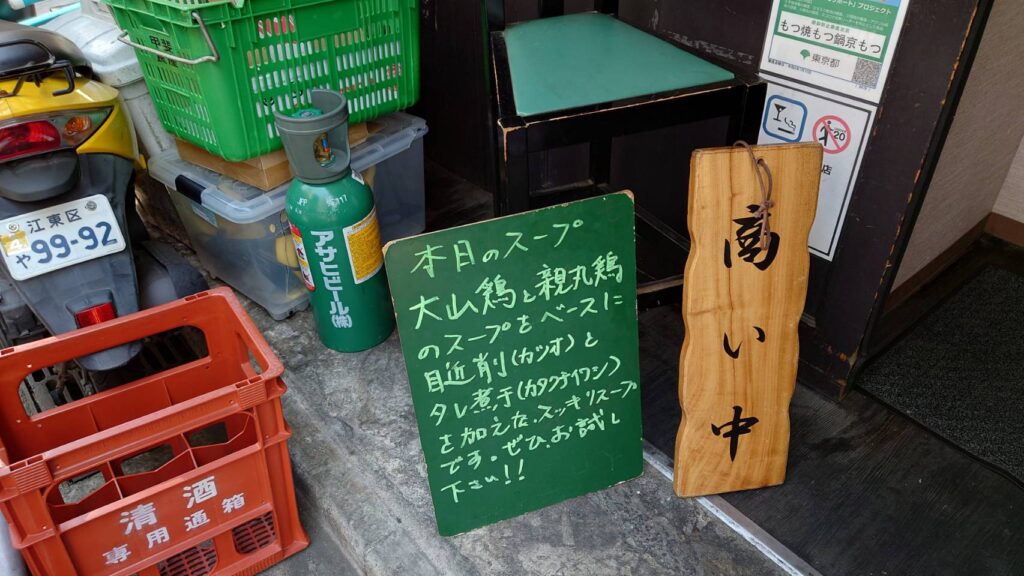 本日のスープ
大山鶏と親丸鶏
のスープをベースに
目近削(カツオ)と
タレ煮干(カタクチイワシ)
を加えた、スッキリスープ
です。ぜひお試し
下さい!!
商い中
江東区
や 99-92
アサヒビール㈱
清酒
専用通箱
もつ焼もつ鍋京もつ
東京都
20